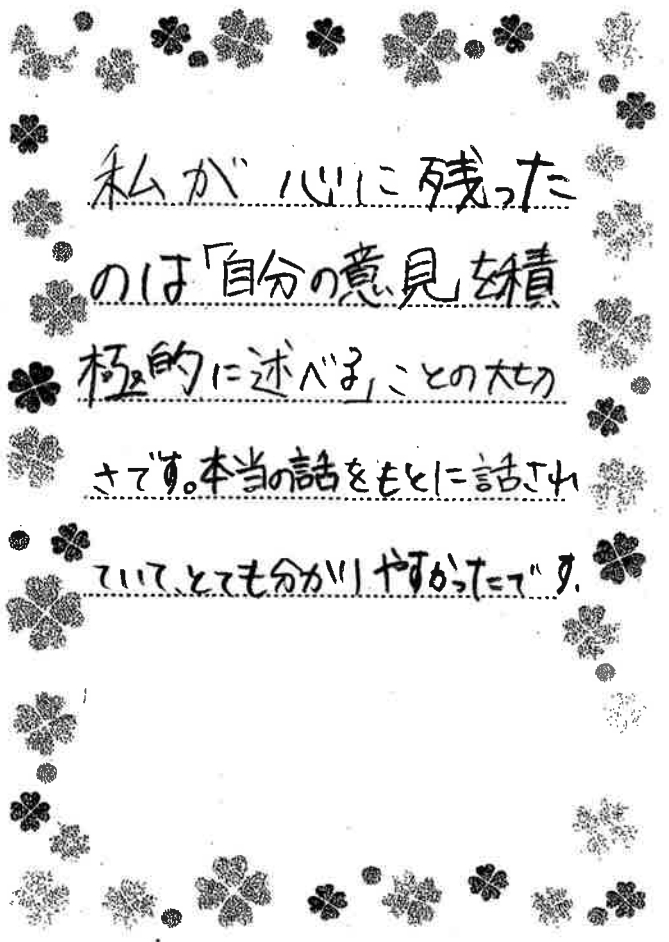 私が心に残った
のは「自分の意見を積
極的に述べる」ことの大切
さです。本当の話をもとに話され
ていて、とても分かりやすかったです。